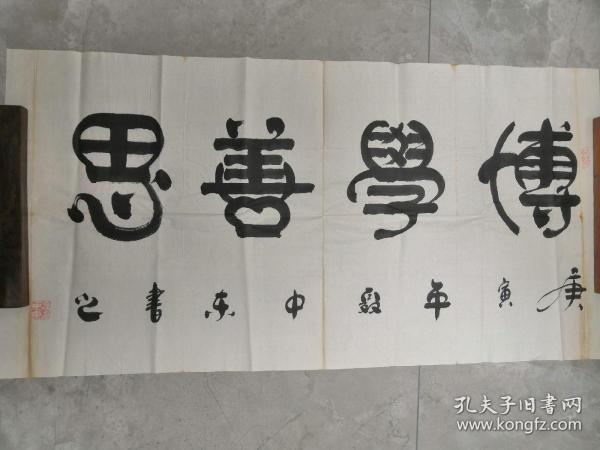 博學善思
庚寅年殷中东書之
孔夫子旧書网
www.kongfz.com